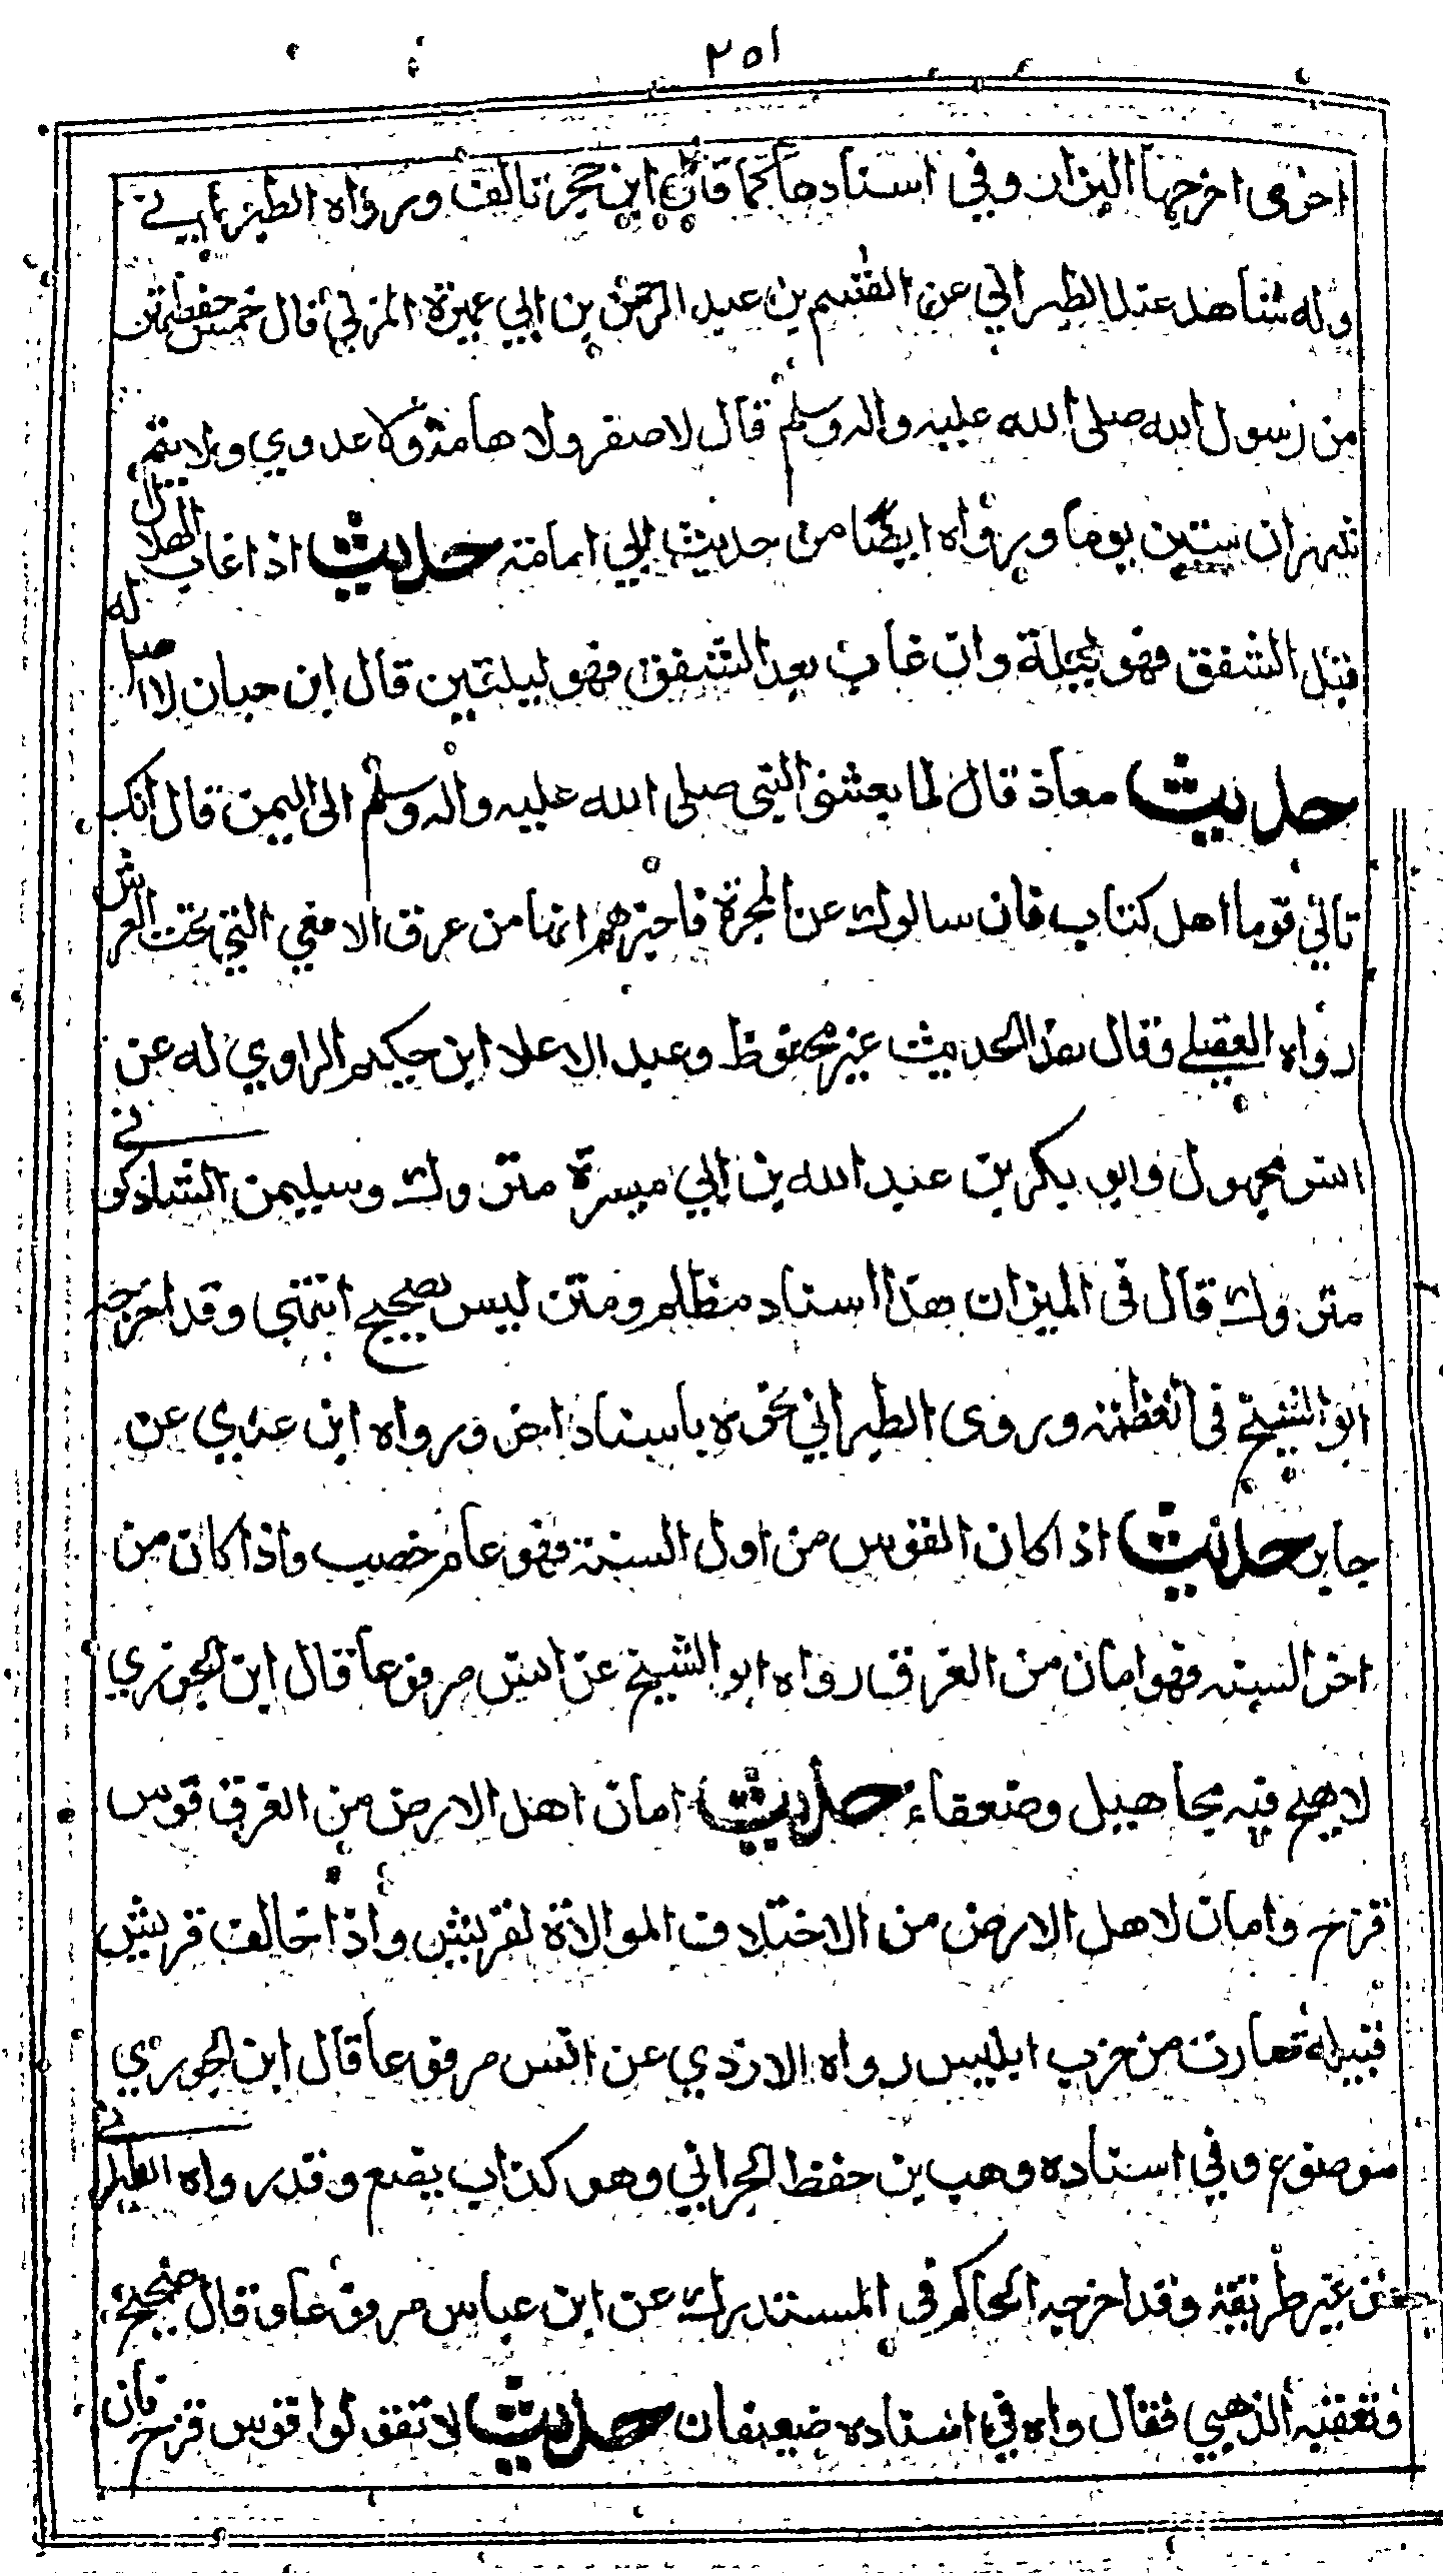 ٢٥١
اخرى اخرجها البزار وفي اسناده كما قال ابن حجر تالف ورواه الطبراني
وله شاهد عند الطبراني عن القسم بن عبد الرحمن بن ابي عميرة المزني قال خمس حفظتهن
من رسول الله صلى الله عليه واله وسلم قال لا صفر ولا هامة ولا عدوي ولا يتم
شهران ستين يوما ورواه ايضا من حديث ابي امامة حديث اذا غاب الهلال
قبل الشفق فهو لليلة وان غاب بعد الشفق فهو ليلتين قال ابن حبان لا اصل له
حديث معاذ قال لما بعثني النبي صلى الله عليه واله وسلم الى اليمن قال انك
تاتي قوما اهل كتاب فان سالوك عن المجرة فاخبرهم انها من عرق الافعي التي تحت العرش
رواه العقيلي وقال هذا الحديث غير محفوظ وعبد الاعلا ابن حكيم الراوي له عن
انس مجهول وابو بكر بن عبد الله بن ابي ميسرة متروك وسليمن الشاذكوني
متروك قال في الميزان هذا اسناد مظلم ومتن ليس بصحيح انتهى وقد اخرجه
ابو الشيخ في العظمة وروى الطبراني نحوه باسناد اخر ورواه ابن عدي عن
جابر حديث اذا كان القوس من اول السنة فهو عام خصب واذا كان من
اخر السنة فهو امان من الغرق رواه ابو الشيخ عن انس مرفوعا قال ابن الجوزي
لا يصح فيه مجاهيل وضعفاء حديث امان اهل الارض من الغرق قوس
قزح وامان لاهل الارض من الاختلاف الموالاة لقريش واذا خالف قريش
قبيلة صارت من حزب ابليس رواه الازدي عن انس مرفوعا قال ابن الجوزي
موضوع وفي اسناده وهب بن حفظ الحراني وهو كذاب يضع وقد رواه الطبراني
من غير طريقه وقد اخرجه الحاكم في المستدرك عن ابن عباس مرفوعا وقال صحيح
وتعقبه الذهبي فقال واه في اسناده ضعيفان حديث لا تقولوا قوس قزح فان